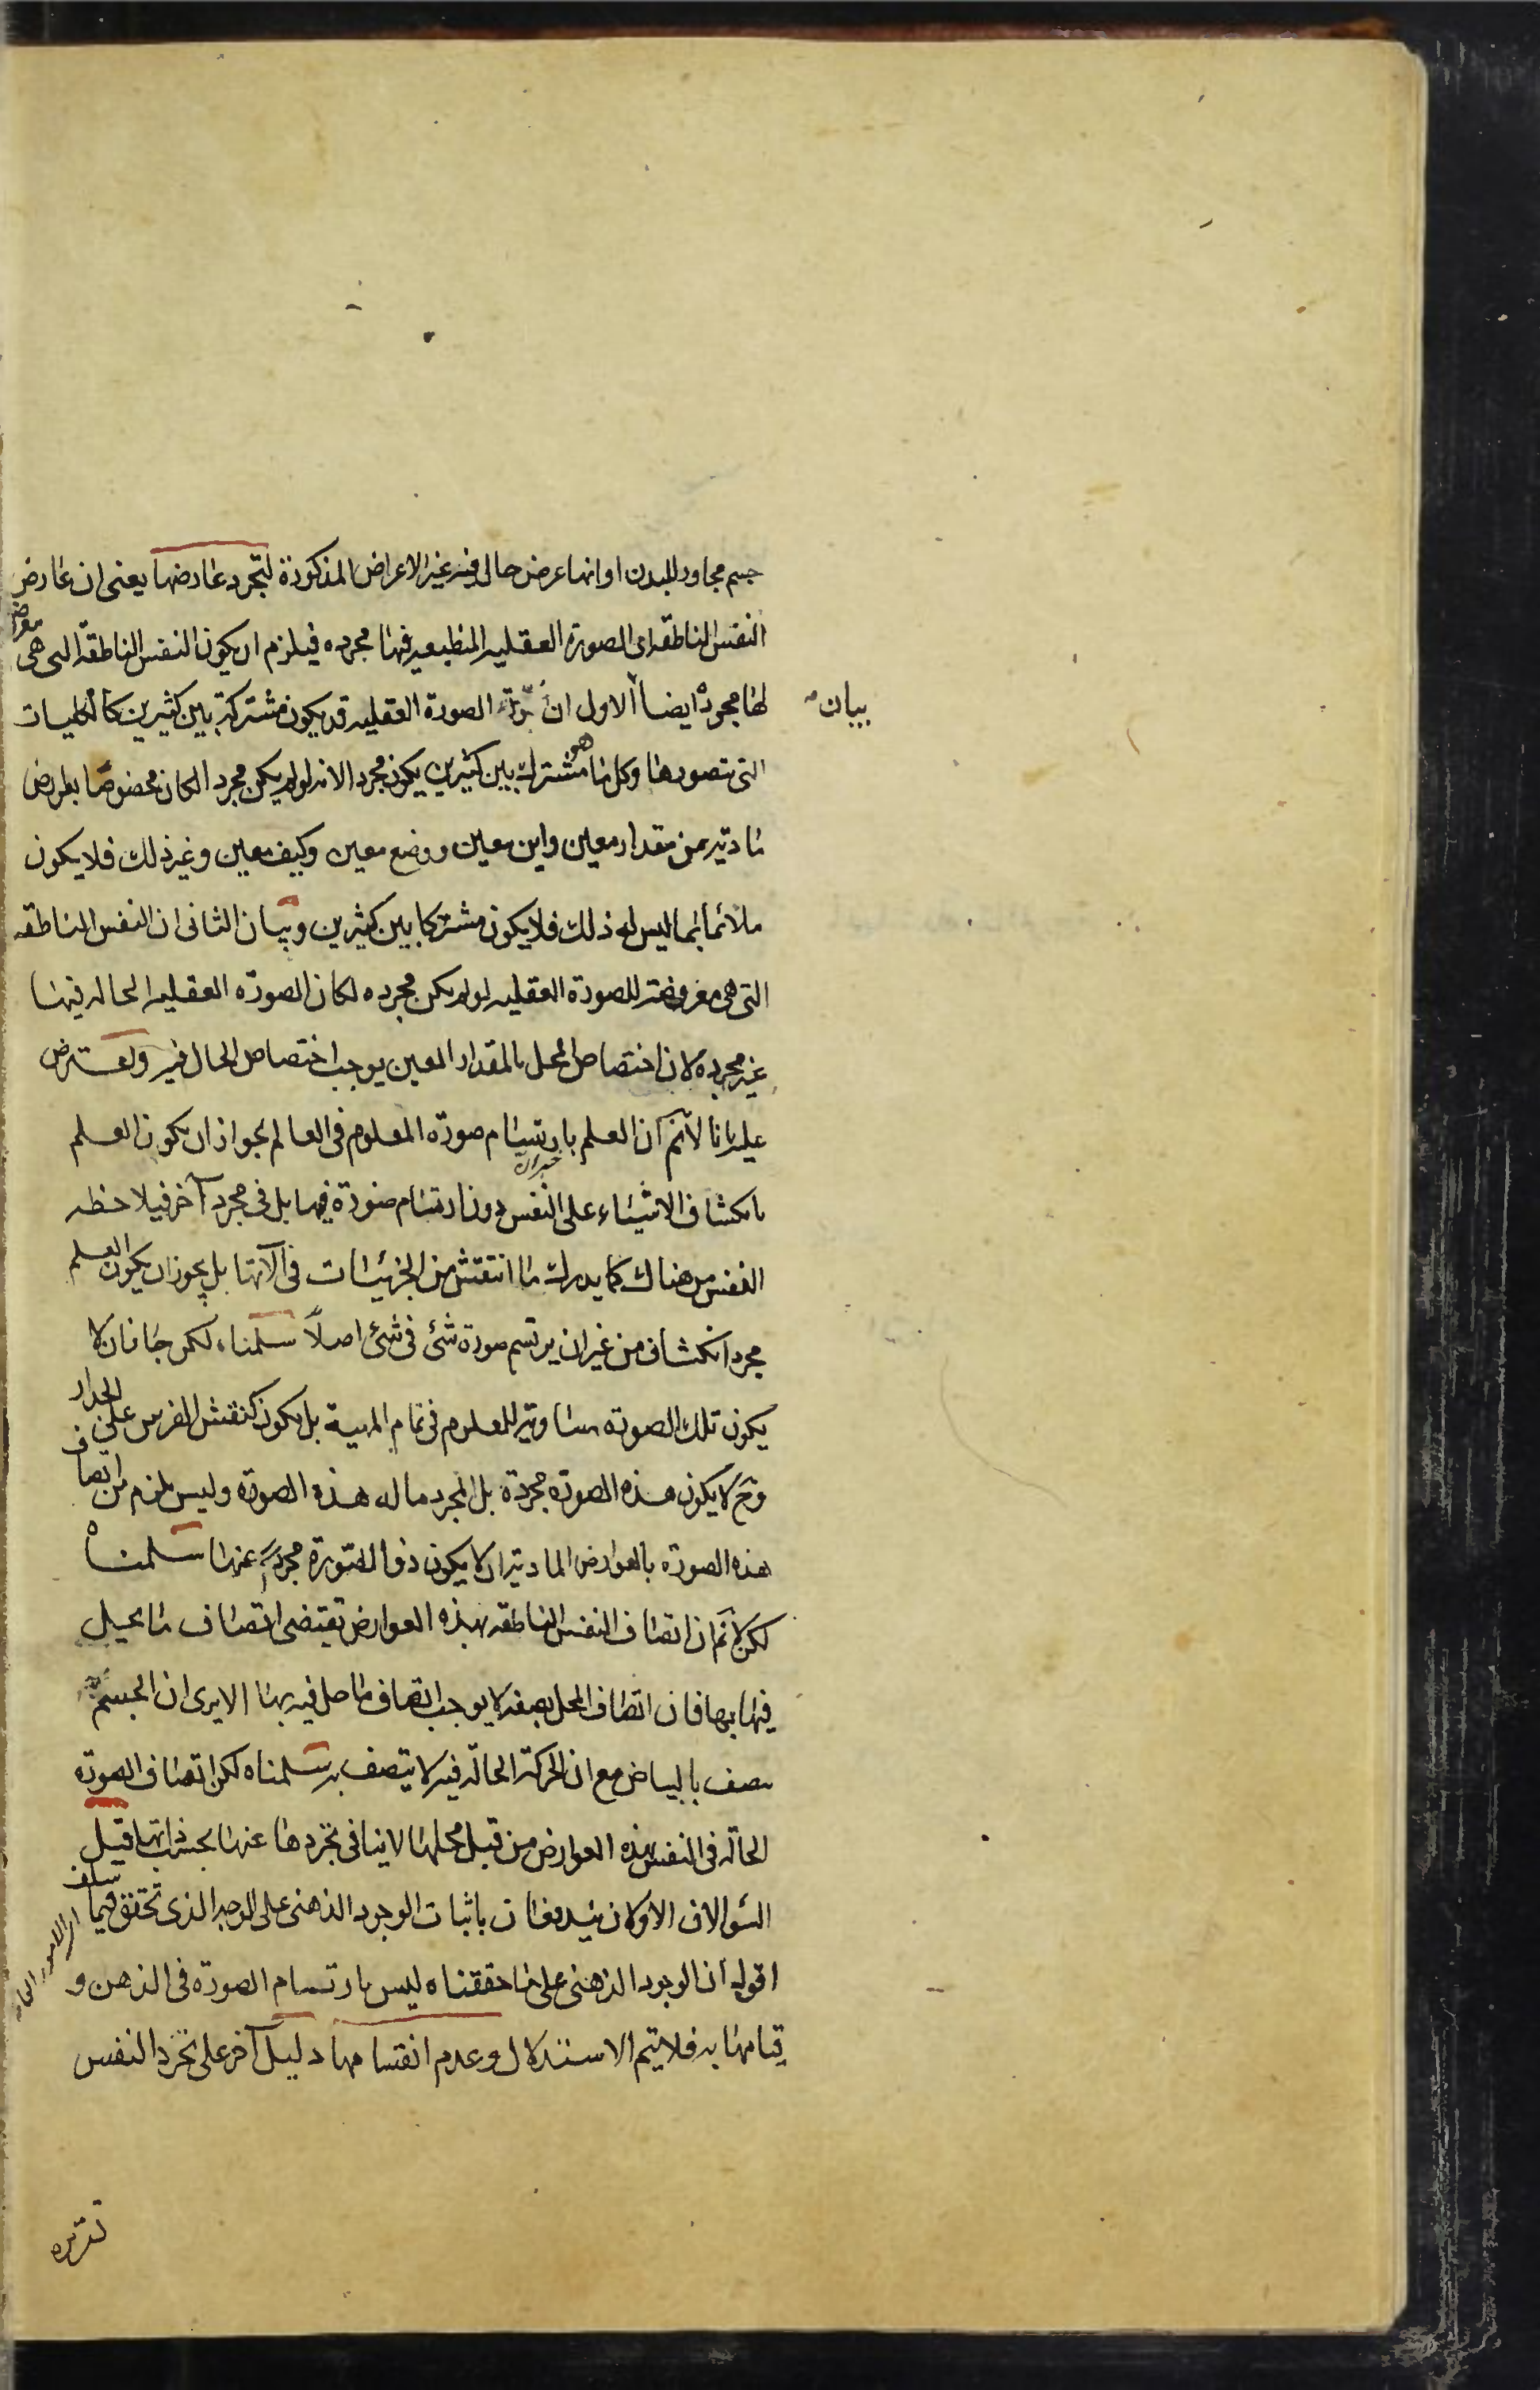 جسم مجاور للبدن او انها عرض حال فيه غير الاعراض المذكورة لتجرد عارضها يعنى ان عارض
النفس الناطقه اى الصورة العقليه المنطبعه فيها مجرده فيلزم ان يكون النفس الناطقة التى هى معروضة
لها مجردة ايضا الاول ان الصورة العقليه قد يكون مشتركة بين كثيرين كالكليات
بيان
التى نتصورها وكل ما هو مشترك بين كثيرين يكون مجردا لانه لو لم يكن مجردا لكان مخصوصا بعوارض
مادية من مقدار معين واين معين ووضع معين وكيف معين وغير ذلك فلا يكون
ملائما بما ليس له ذلك فلا يكون مشتركا بين كثيرين وبيان الثانى ان النفس الناطقه
التى هى معروضة للصورة العقليه لو لم يكن مجرده لكان الصورة العقليه الحاله فيها
غير مجرده لان اختصاص المحل بالمقدار المعين يوجب اختصاص الحال فيه ويعترض
عليه بانا لانم ان العلم بارتسام صورة المعلوم فى العالم لجواز ان يكون العلم
بانكشاف الاشياء على النفس من غير ان دون ارتسام صورة فيها بل فى مجرد آخر فيلاحظه
النفس من هناك كما يدرك ما انتقش من الجزئيات فى آلاتها بل يجوز ان يكون العلم
مجرد انكشاف من غير ان يرتسم صورة شئ فى شئ اصلاً سلمناه لكن جاز ان لا
يكون تلك الصورة مساوية للمعلوم فى تمام المهية بل يكون كنقش الفرس على الجدار
وح لا يكون هذه الصورة مجردة بل المجرد ما له هذه الصورة وليس يلزم من اتصاف
هذه الصورة بالعوارض المادية ان لا يكون ذو الصورة مجردا عنها سلمناه
لكن لانم ان اتصاف النفس الناطقه بهذه العوارض تقتضى اتصاف ما يحل
فيها بها فان اتصاف المحل بصفه لا يوجب اتصاف ما حل فيه بها الا يرى ان الجسم
يتصف بالبياض مع ان الحركة الحالة فيه لا يتصف به سلمناه لكن اتصاف الصورة
الحالة فى النفس بهذه العوارض من قبل محلها لا ينافى تجردها عنها بحسب ذاتها قيل
السؤالان الاولان يندفعان باثبات الوجود الذهنى على الوجه الذى تحقق فيما سلف
اقول ان الوجود الذهنى على ما حققناه ليس بارتسام الصورة فى الذهن و
قيامها به فلا يتم الاستدلال وعدم انقسامها دليل آخر على تجرد النفس
تقريره